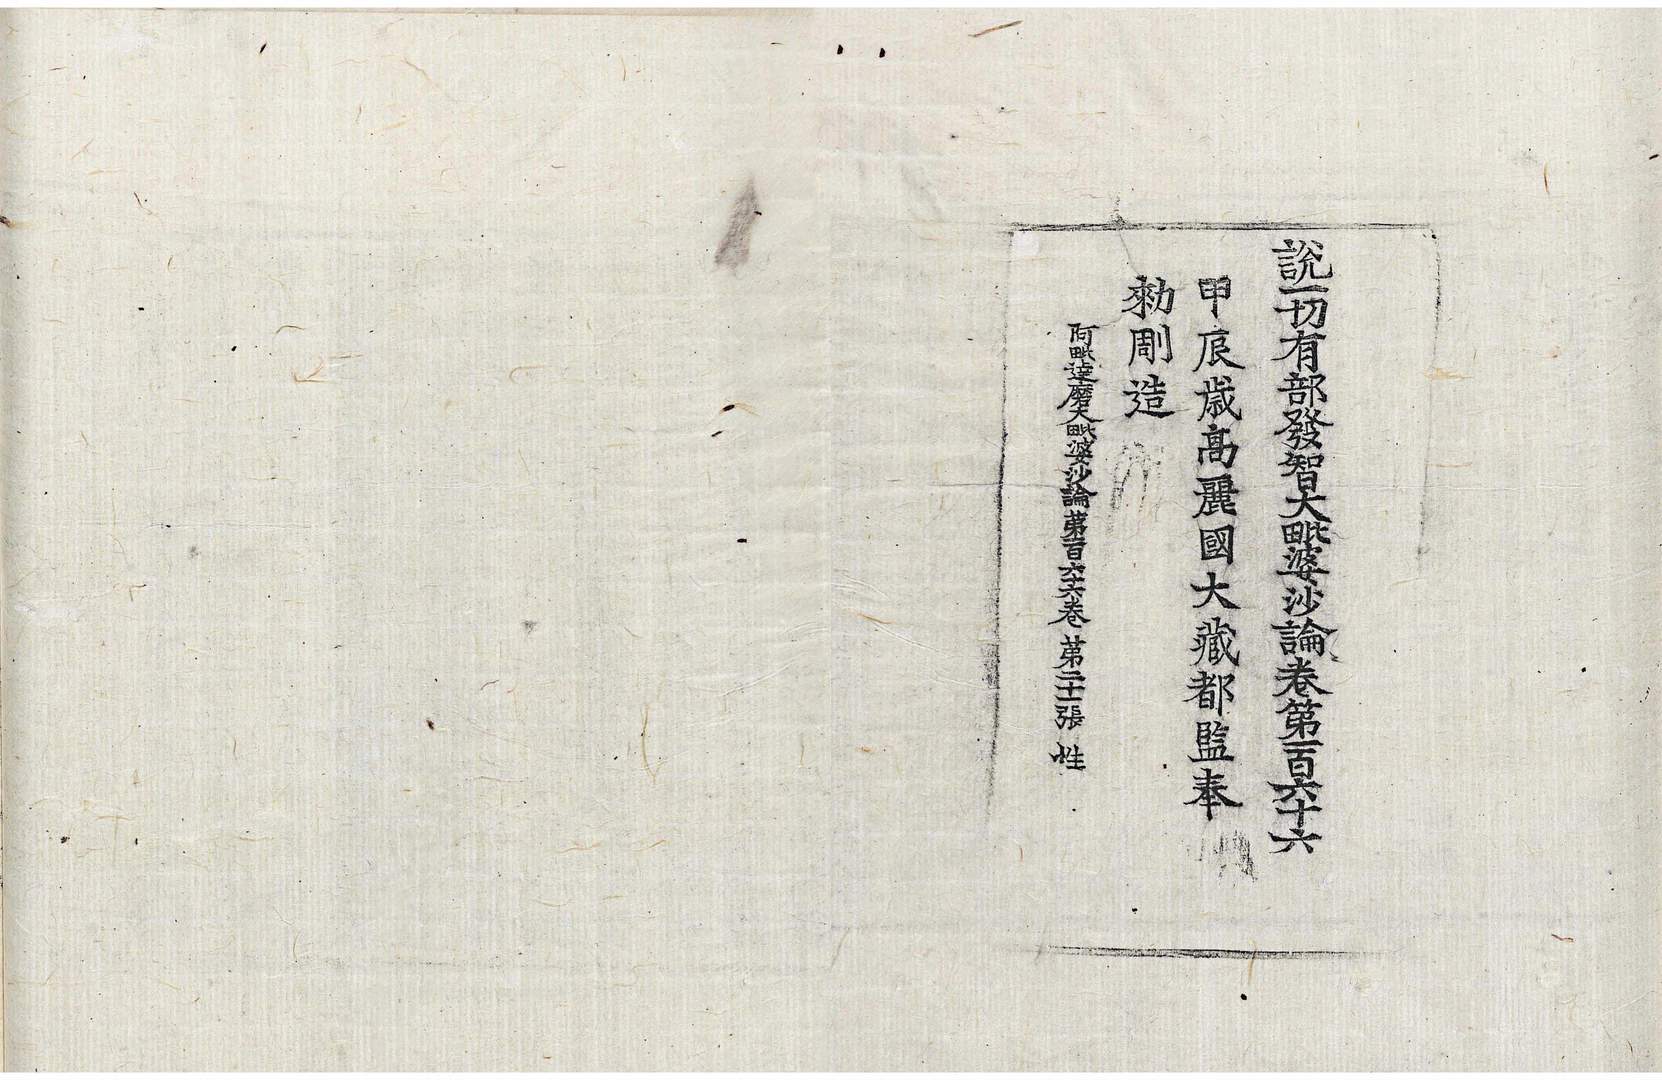 說一切有部發智大毗婆沙論卷第一百六十六
甲辰歲高麗國大藏都監奉
勅彫造
阿毗達磨大毗婆沙論第一百六十六卷 第二十一張 性